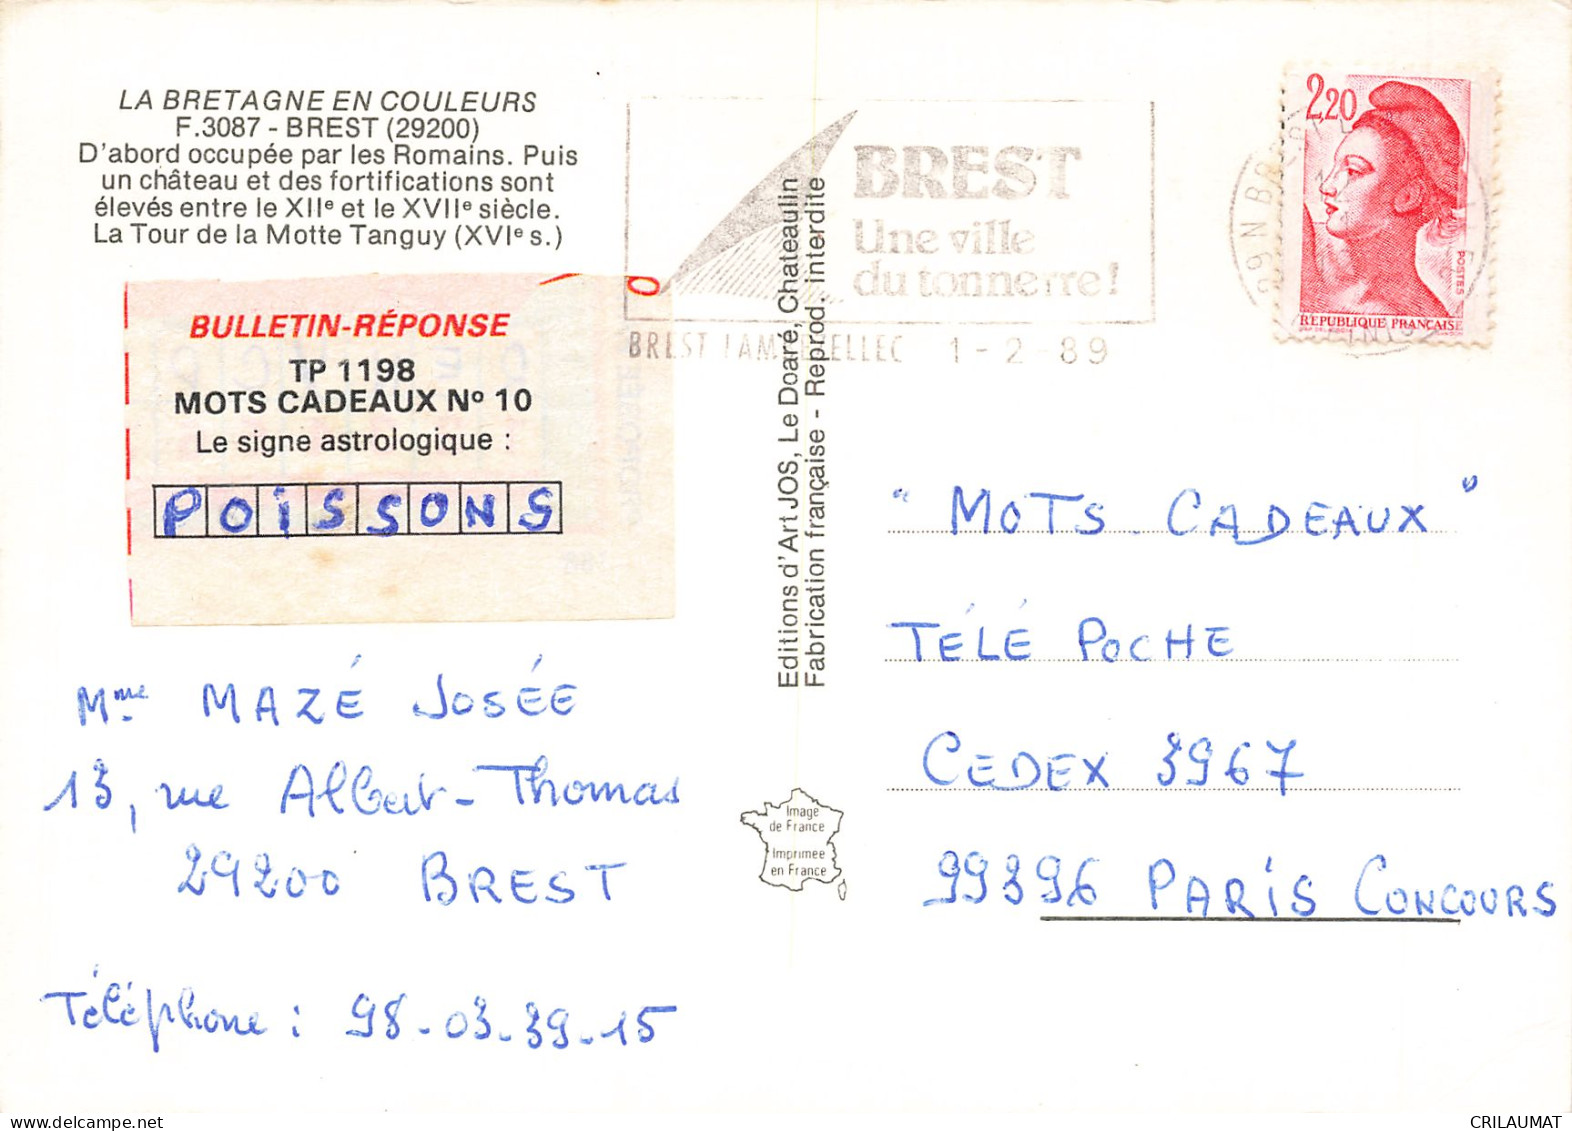 LA BRETAGNE EN COULEURS
F.3087 - BREST (29200)
D'abord occupée par les Romains. Puis
un château et des fortifications sont
élevés entre le XIIe et le XVIIe siècle.
La Tour de la Motte Tanguy (XVIe s.)
BULLETIN-RÉPONSE
TP 1198
MOTS CADEAUX No 10
Le signe astrologique :
POiSSONS
Mme MAZÉ JOSÉE
13, rue Albert-Thomas
29200 BREST
Téléphone : 98-03-39-15
Editions d'Art JOS, Le Doaré, Chateaulin
Fabrication française - Reprod. interdite
Image
de France
Imprimée
en France
BREST
Une ville
du tonnerre !
BREST 1-2-89
29 N BREST
2,20
POSTES
REPUBLIQUE FRANÇAISE
"MOTS CADEAUX"
TÉLÉ POCHE
CEDEX 3967
99396 PARIS CONCOURS
CRILAUMAT